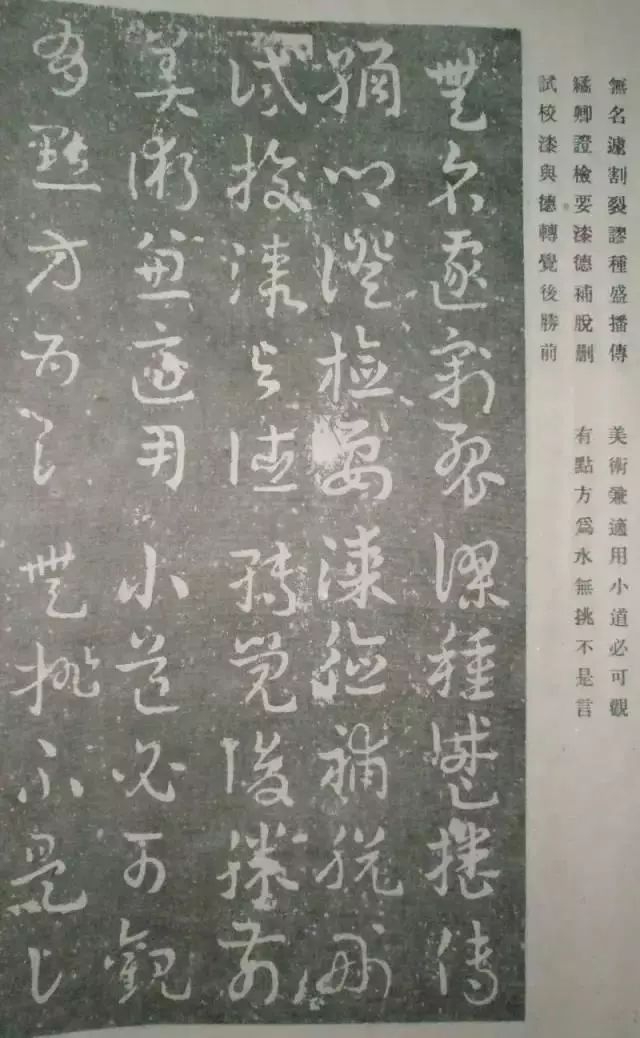 無名遽割裂謬種盛播傳
繘卿證檢要漆德補脫刪
試校漆與德轉覺後勝前
美術兼適用小道必可觀
有點方爲水無挑不是言
無名遽割裂謬種盛播傳
繘卿證檢要漆德補脫刪
試校漆與德轉覺後勝前
美術兼適用小道必可觀
有點方爲水無挑不是言